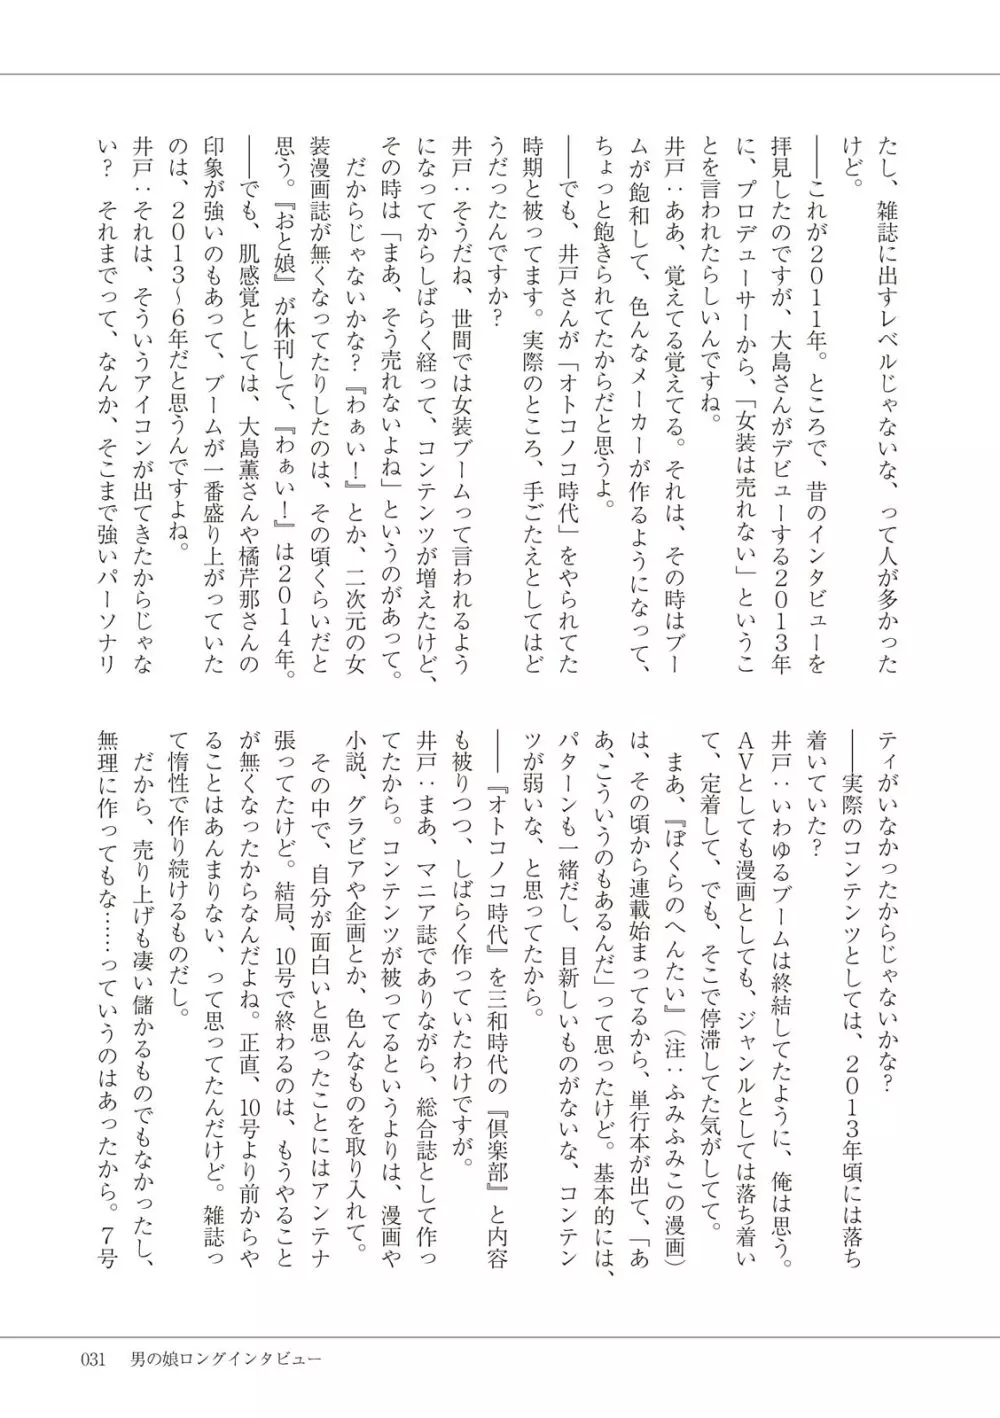 たし、雑誌に出すレベルじゃないな、って人が多かった
けど。
――これが2011年。ところで、昔のインタビューを
拝見したのですが、大島さんがデビューする2013年
に、プロデューサーから、「女装は売れない」というこ
とを言われたらしいんですね。
井戸：ああ、覚えてる覚えてる。それは、その時はブー
ムが飽和して、色んなメーカーが作るようになって、
ちょっと飽きられてたからだと思うよ。
――でも、井戸さんが「オトコノコ時代」をやられてた
時期と被ってます。実際のところ、手ごたえとしてはど
うだったんですか？
井戸：そうだね、世間では女装ブームって言われるよう
になってからしばらく経って、コンテンツが増えたけど、
その時は「まあ、そう売れないよね」というのがあって。
　だからじゃないかな？『わぁい！』とか、二次元の女
装漫画誌が無くなってたりしたのは、その頃くらいだと
思う。『おと娘』が休刊して、『わぁい！』は2014年。
――でも、肌感覚としては、大島薫さんや橘芹那さんの
印象が強いのもあって、ブームが一番盛り上がっていた
のは、2013〜6年だと思うんですよね。
井戸：それは、そういうアイコンが出てきたからじゃな
い？　それまでって、なんか、そこまで強いパーソナリ
ティがいなかったからじゃないかな？
――実際のコンテンツとしては、2013年頃には落ち
着いていた？
井戸：いわゆるブームは終結してたように、俺は思う。
AVとしても漫画としても、ジャンルとしては落ち着い
て、定着して、でも、そこで停滞してた気がしてて。
　まあ、『ぼくらのへんたい』（注：ふみふみこの漫画）
は、その頃から連載始まってるから、単行本が出て、「あ
あ、こういうのもあるんだ」って思ったけど。基本的には、
パターンも一緒だし、目新しいものがないな、コンテン
ツが弱いな、と思ってたから。
――『オトコノコ時代』を三和時代の『倶楽部』と内容
も被りつつ、しばらく作っていたわけですが。
井戸：まあ、マニア誌でありながら、総合誌として作っ
てたから。コンテンツが被ってるというよりは、漫画や
小説、グラビアや企画とか、色んなものを取り入れて。
　その中で、自分が面白いと思ったことにはアンテナ
張ってたけど。結局、10号で終わるのは、もうやること
が無くなったからなんだよね。正直、10号より前からや
ることはあんまりない、って思ってたんだけど。雑誌っ
て惰性で作り続けるものだし。
　だから、売り上げも凄い儲かるものでもなかったし、
無理に作ってもな……っていうのはあったから。7号
031　男の娘ロングインタビュー